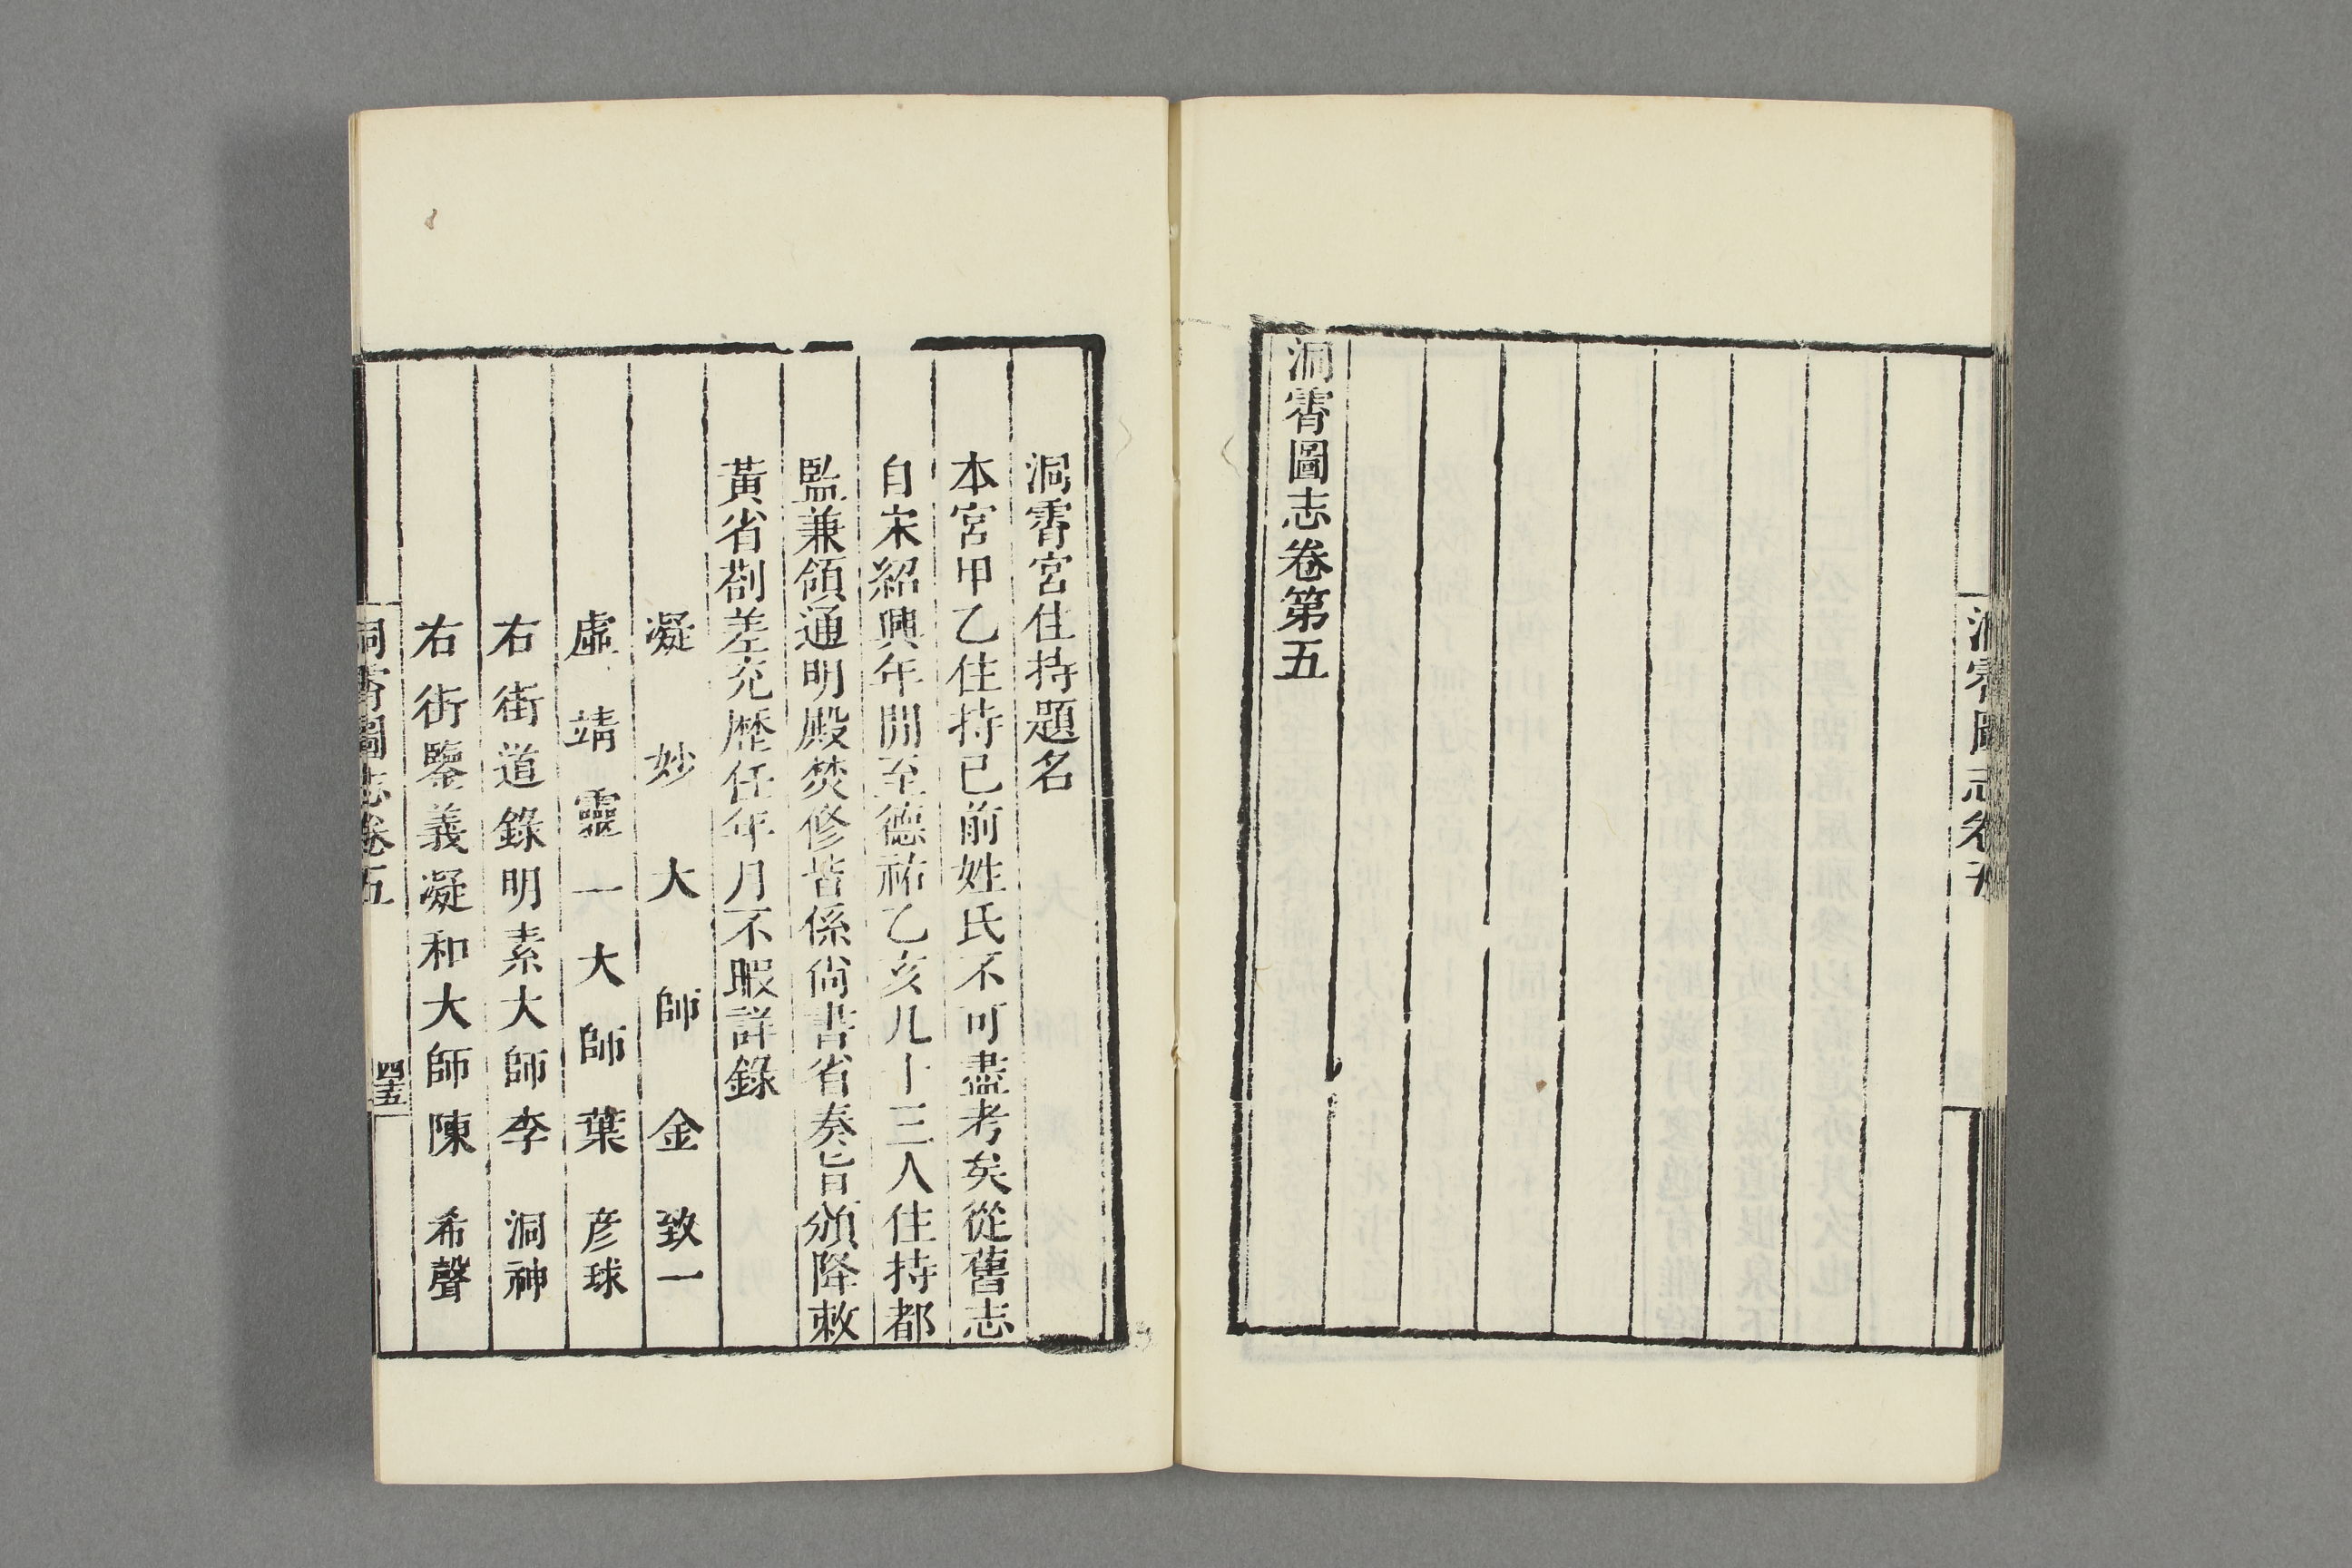 洞霄圖志卷五
洞霄圖志卷第五
洞霄宮住持題名
本宮甲乙住持已前姓氏不可盡考矣從舊志
自宋紹興年開至德祐乙亥凡十三人住持都
監兼領通明殿焚修皆係尙書省奏旨頒降敕
黃省劄差充歷任年月不暇詳錄
凝妙大師金致一
虛靖靈一大師葉彦球
右街道錄明素大師李洞神
右街鑒義凝和大師陳希聲
洞霄圖志卷五
四十五